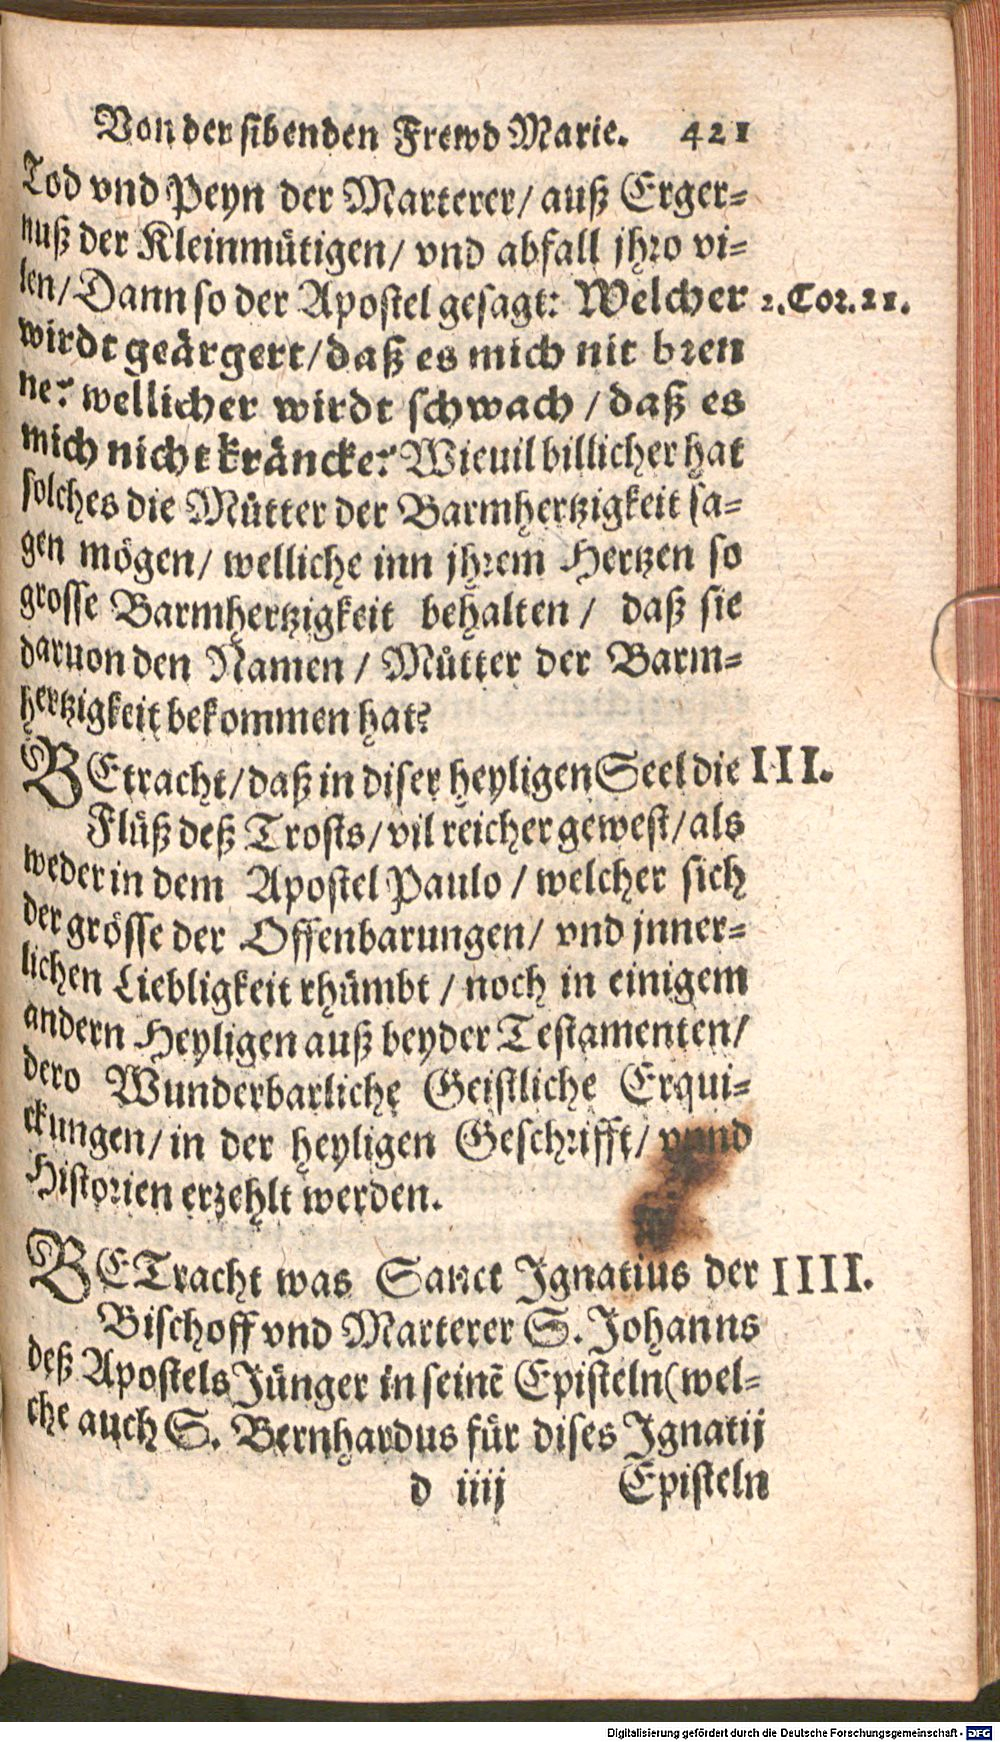 Von der sibenden Frewd Marie. 421
Tod vnd Peyn der Marterer/ auß Erger-
nuß der Kleinmütigen/ vnd abfall jhro vi-
len/ Dann so der Apostel gesagt: Welcher 2. Cor. 21.
wirdt geärgert/ daß es mich nit bren
ne? wellicher wirdt schwach/ daß es
mich nicht kräncke? Wieuil billicher hat
solches die Mütter der Barmhertzigkeit sa-
gen mögen/ welliche inn jhrem Hertzen so
grosse Barmhertzigkeit behalten/ daß sie
daruon den Namen/ Mütter der Barm-
hertzigkeit bekommen hat?
BEtracht/ daß in diser heyligen Seel die III.
Flüß deß Trosts/ vil reicher gewest/ als
weder in dem Apostel Paulo/ welcher sich
der grösse der Offenbarungen/ vnd jnner-
lichen Liebligkeit rhümbt/ noch in einigem
andern Heyligen auß beyder Testamenten/
dero Wunderbarliche Geistliche Erqui-
ckungen/ in der heyligen Geschrifft/ vnnd
Historien erzehlt werden.
BETracht was Sanct Ignatius der IIII.
Bischoff vnd Marterer S. Johanns
deß Apostels Jünger in seinē Episteln (wel-
che auch S. Bernhardus für dises Ignatij
d iiij Episteln
Digitalisierung gefördert durch die Deutsche Forschungsgemeinschaft - DFG